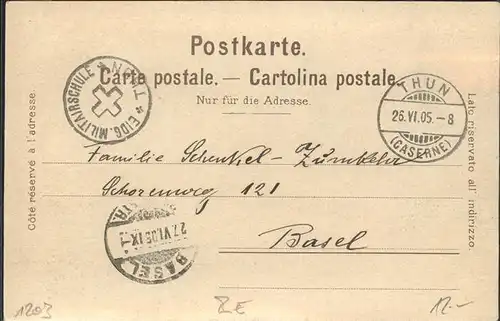 Postkarte.
Carte postale. — Cartolina postale.
Nur für die Adresse.
Côté réservé à l'adresse.
Lato riservato all' indirizzo.
EIDG. MILITAIRSCHULE * THUN *
THUN
26.VI.05.-8
(CASERNE)
Familie Schenkel-
121
Basel
BASEL
27.VI.05.IX-
1203
ZE
12.-